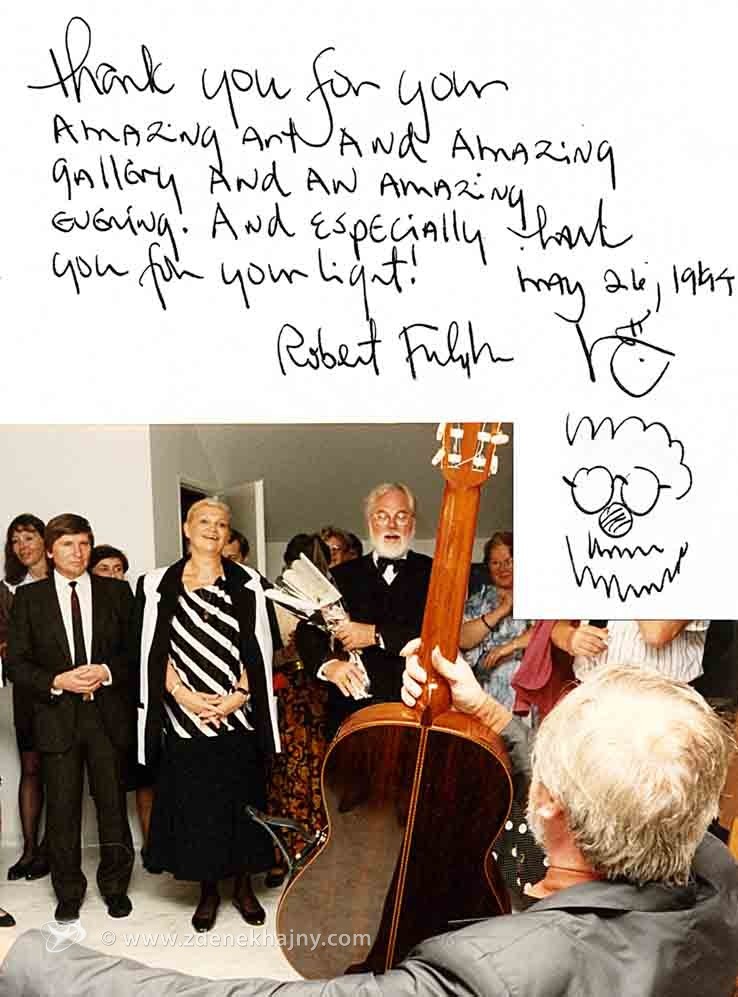 thank you for your
AMAZING ART AND AMAZING
gallery AND AN AMAZING
EVENING. And ESPECIALLY thank
you for your light! MAY 26, 1994
Robert Fulghum
© www.zdenekhajny.com